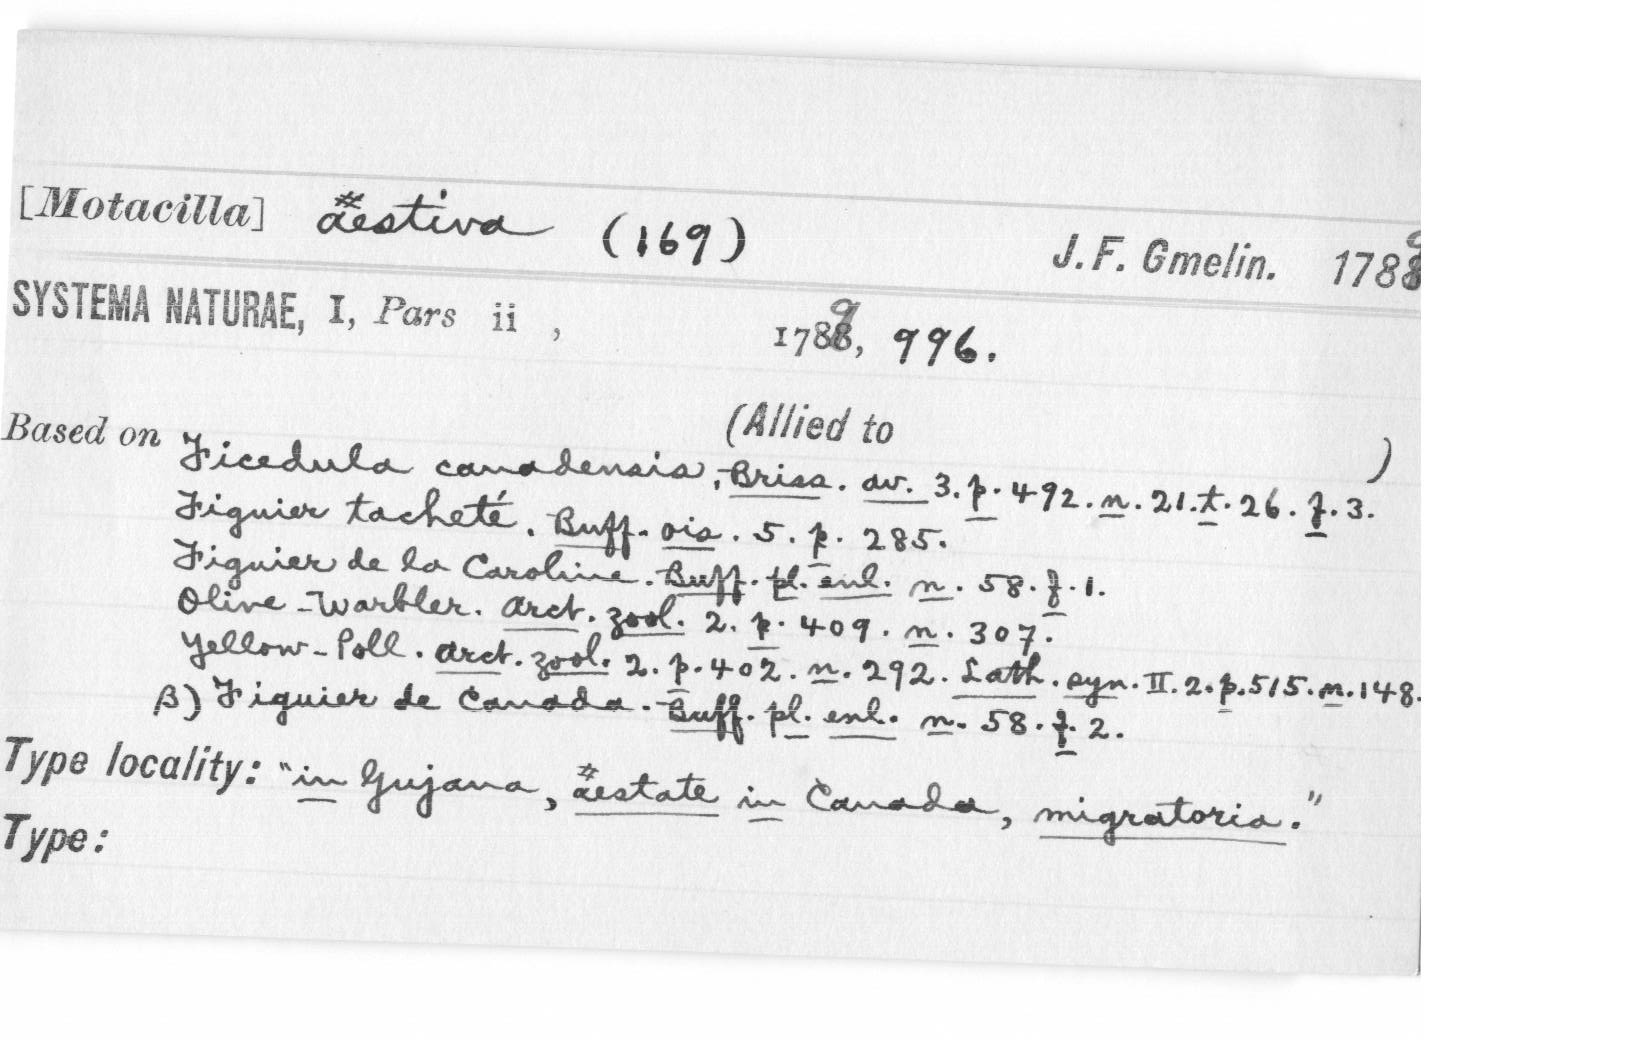 [Motacilla] aestiva (169)
J. F. Gmelin. 1789
SYSTEMA NATURAE, I, Pars ii , 1789, 996.
(Allied to )
Based on Ficedula canadensis, Briss. av. 3. p. 492. n. 21. t. 26. f. 3.
Figuier tacheté. Buff. ois. 5. p. 285.
Figuier de la Caroline. Buff. pl. enl. n. 58. f. 1.
Olive-Warbler. Arct. zool. 2. p. 409. n. 307.
Yellow-Poll. Arct. zool. 2. p. 402. n. 292. Lath. syn. II. 2. p. 515. n. 148.
β) Figuier de Canada. Buff. pl. enl. n. 58. f. 2.
Type locality: "in Gujana, aestate in Canada, migratoria."
Type: